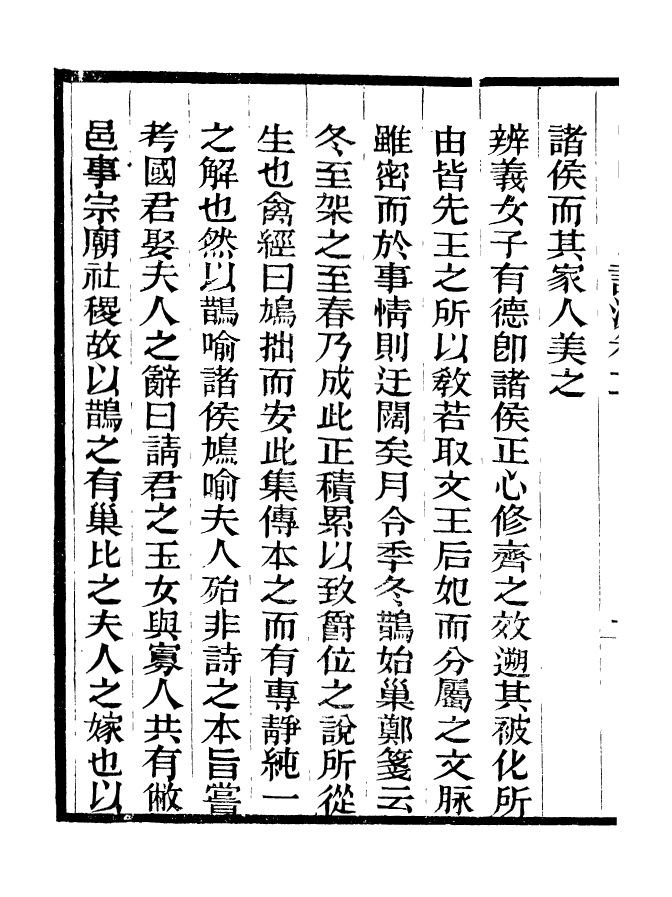 諸侯而其家人美之
辨義女子有德卽諸侯正心修齊之效遡其被化所
由皆先王之所以敎若取文王后妃而分屬之文脉
雖密而於事情則迂闊矣月令季冬鵲始巢鄭箋云
冬至架之至春乃成此正積累以致爵位之說所從
生也禽經曰鳩拙而安此集傳本之而有專靜純一
之解也然以鵲喻諸侯鳩喻夫人殆非詩之本旨嘗
考國君娶夫人之辭曰請君之玉女與寡人共有敝
邑事宗廟社稷故以鵲之有巢比之夫人之嫁也以